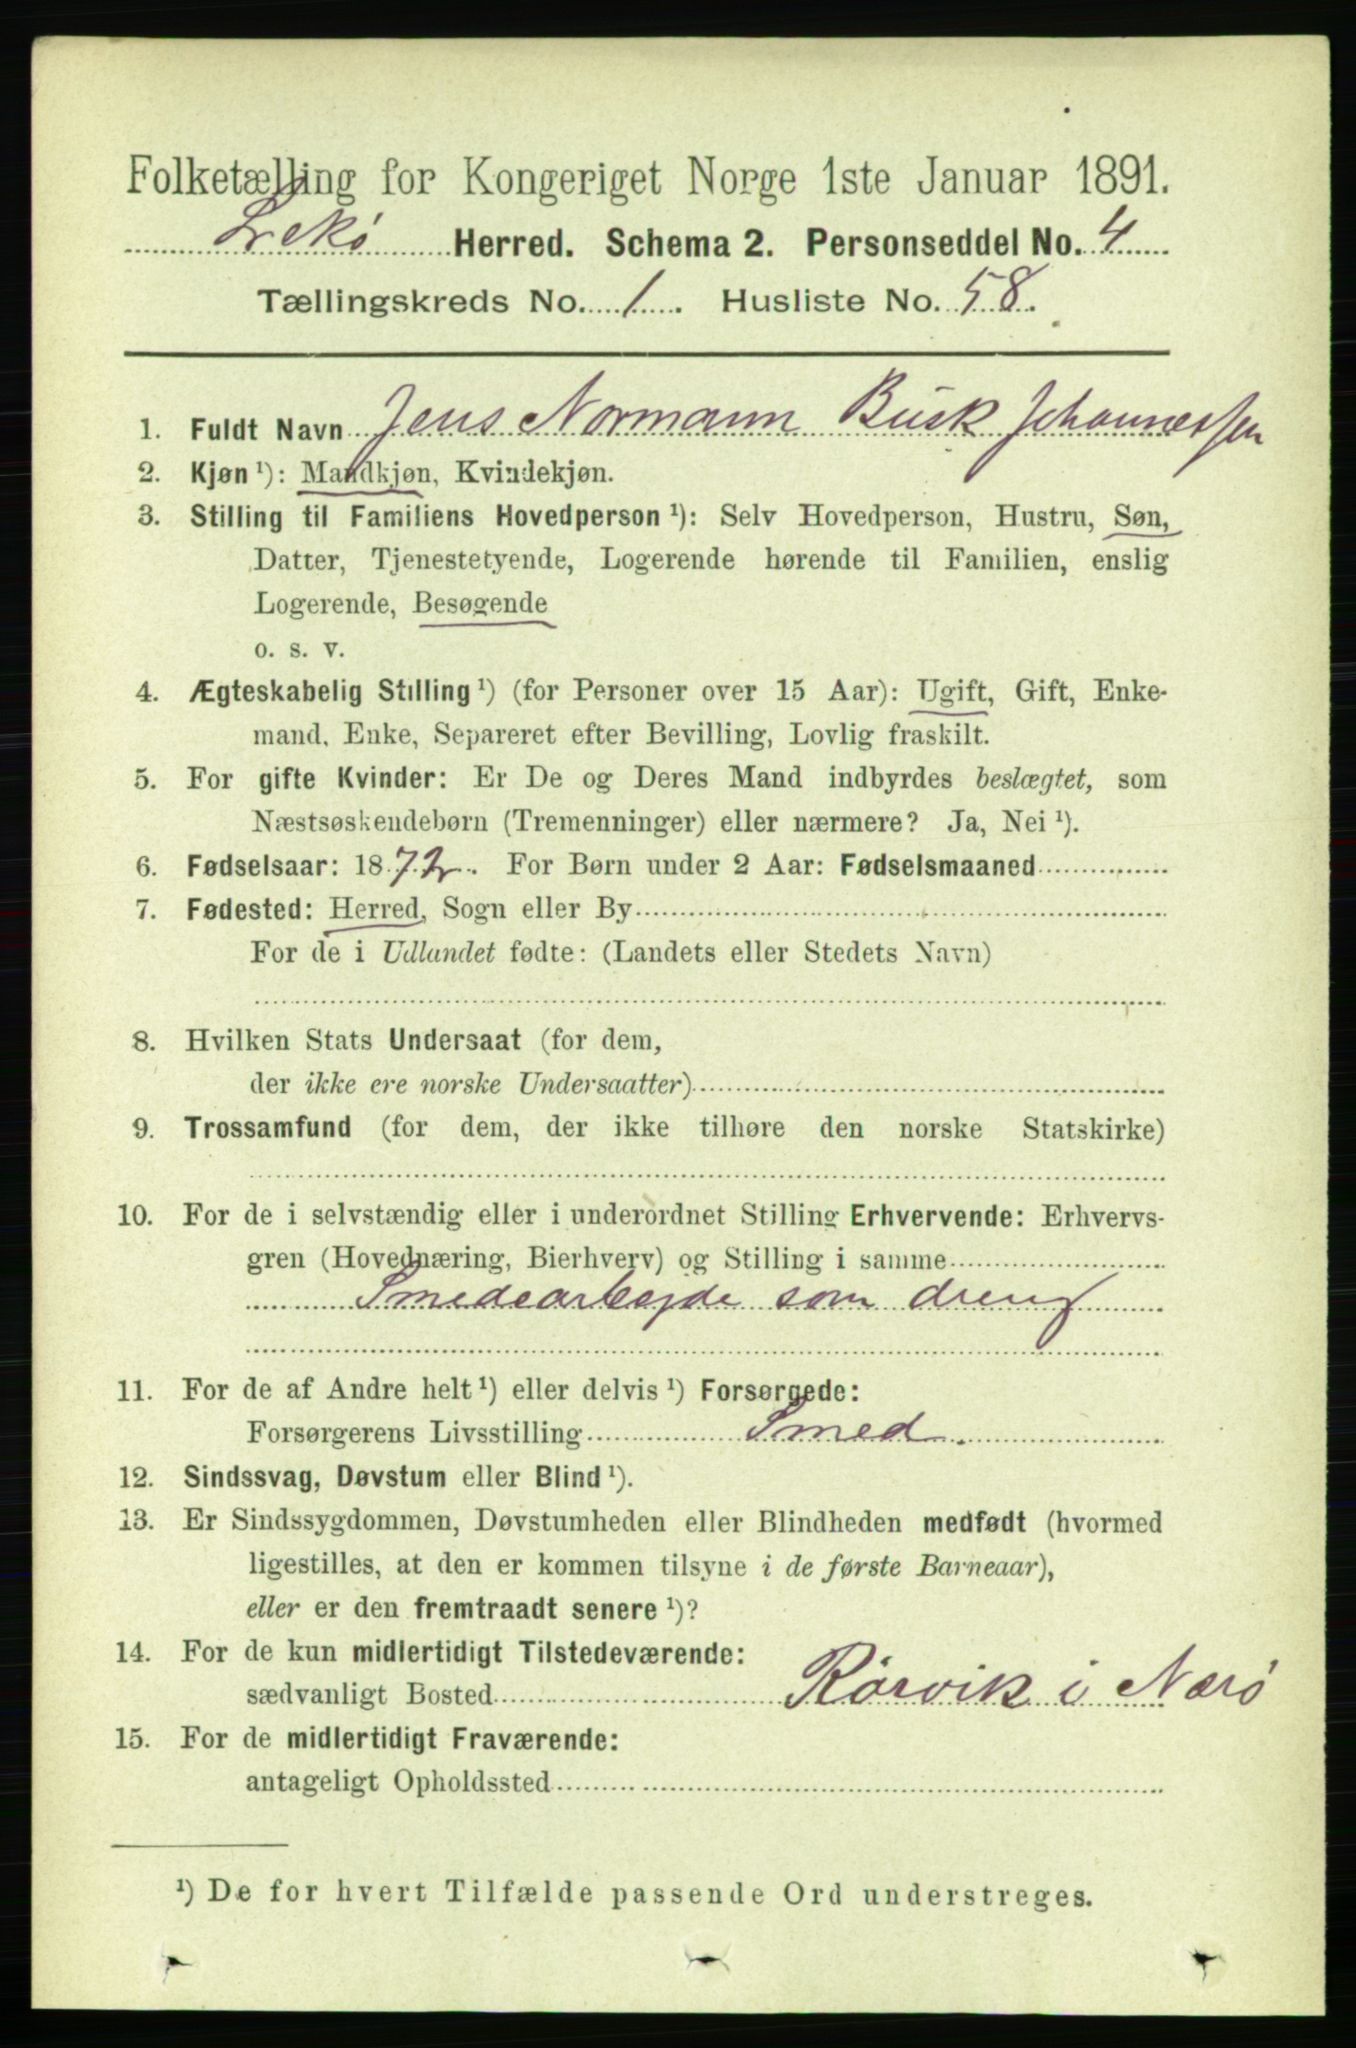 Folketælling for Kongeriget Norge 1ste Januar 1891.
Lekø Herred. Schema 2. Personseddel No. 4
Tællingskreds No. 1. Husliste No. 58.
1. Fuldt Navn Jens Normann Busk Johannessen
2. Kjøn ¹): Mandkjøn, Kvindekjøn.
3. Stilling til Familiens Hovedperson ¹): Selv Hovedperson, Hustru, Søn,
Datter, Tjenestetyende, Logerende hørende til Familien, enslig
Logerende, Besøgende
o. s. v.
4. Ægteskabelig Stilling ¹) (for Personer over 15 Aar): Ugift, Gift, Enke-
mand, Enke, Separeret efter Bevilling, Lovlig fraskilt.
5. For gifte Kvinder: Er De og Deres Mand indbyrdes beslægtet, som
Næstsøskendebørn (Tremenninger) eller nærmere? Ja, Nei ¹).
6. Fødselsaar: 1872. For Børn under 2 Aar: Fødselsmaaned
7. Fødested: Herred, Sogn eller By
For de i Udlandet fødte: (Landets eller Stedets Navn)
8. Hvilken Stats Undersaat (for dem,
der ikke ere norske Undersaatter)
9. Trossamfund (for dem, der ikke tilhøre den norske Statskirke)
10. For de i selvstændig eller i underordnet Stilling Erhvervende: Erhvervs-
gren (Hovednæring, Bierhverv) og Stilling i samme
Smedearbejde som dreng
11. For de af Andre helt ¹) eller delvis ¹) Forsørgede:
Forsørgerens Livsstilling Smed.
12. Sindssvag, Døvstum eller Blind ¹).
13. Er Sindssygdommen, Døvstumheden eller Blindheden medfødt (hvormed
ligestilles, at den er kommen tilsyne i de første Barneaar),
eller er den fremtraadt senere ¹)?
14. For de kun midlertidigt Tilstedeværende:
sædvanligt Bosted Rörvik i Nærö
15. For de midlertidigt Fraværende:
antageligt Opholdssted
¹) De for hvert Tilfælde passende Ord understreges.